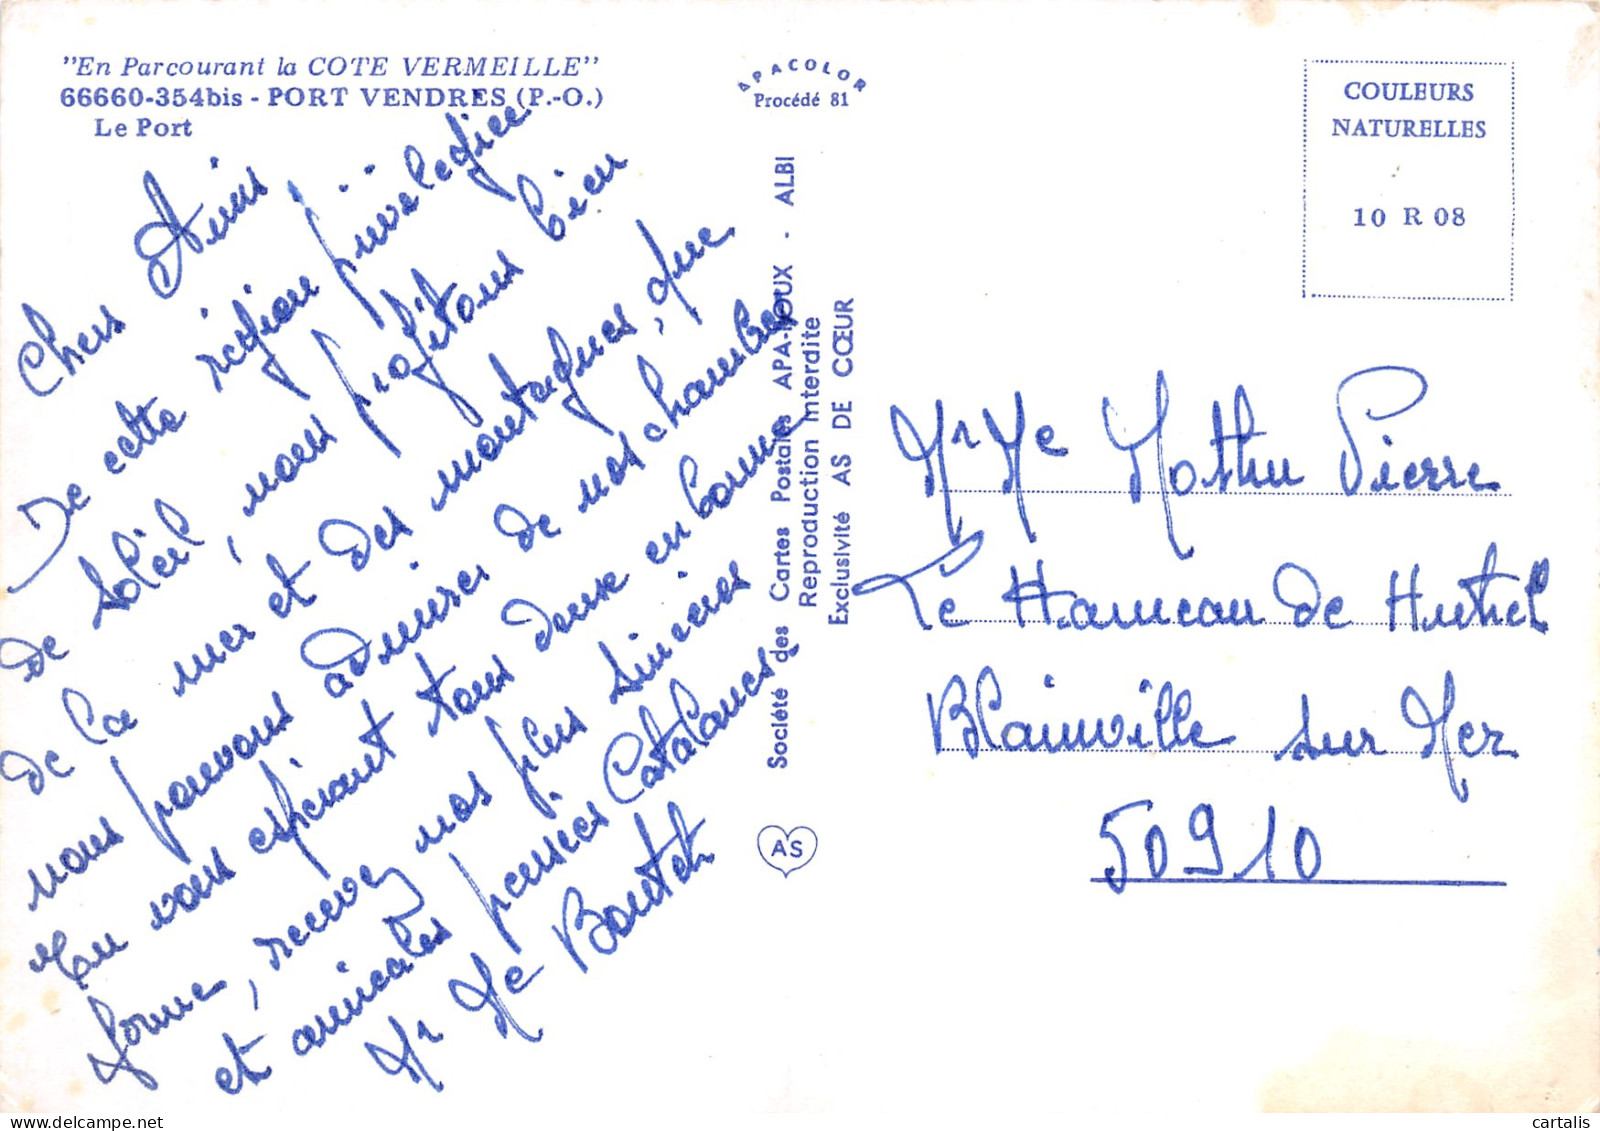 "En Parcourant la COTE VERMEILLE"
66660-354bis - PORT VENDRES (P.-O.)
Le Port
APACOLOR
Procédé 81
COULEURS
NATURELLES
10 R 08
Chers Amis,
De cette région privilegiée
de soleil, nous profitons bien
de la mer et des montagnes, que
nous pouvons admirer de nos chambres
En vous espérant tous deux en bonne
forme, recevez nos plus sincères
et amicales pensées Catalanes.
Mr Me Boutet
Société des Cartes Postales APA-POUX - ALBI
Reproduction Interdite
Exclusivité AS DE CŒUR
AS
Mr Me Mothu Pierre
Le Hameau de Hutrel
Blainville sur Mer
50910
cartalis